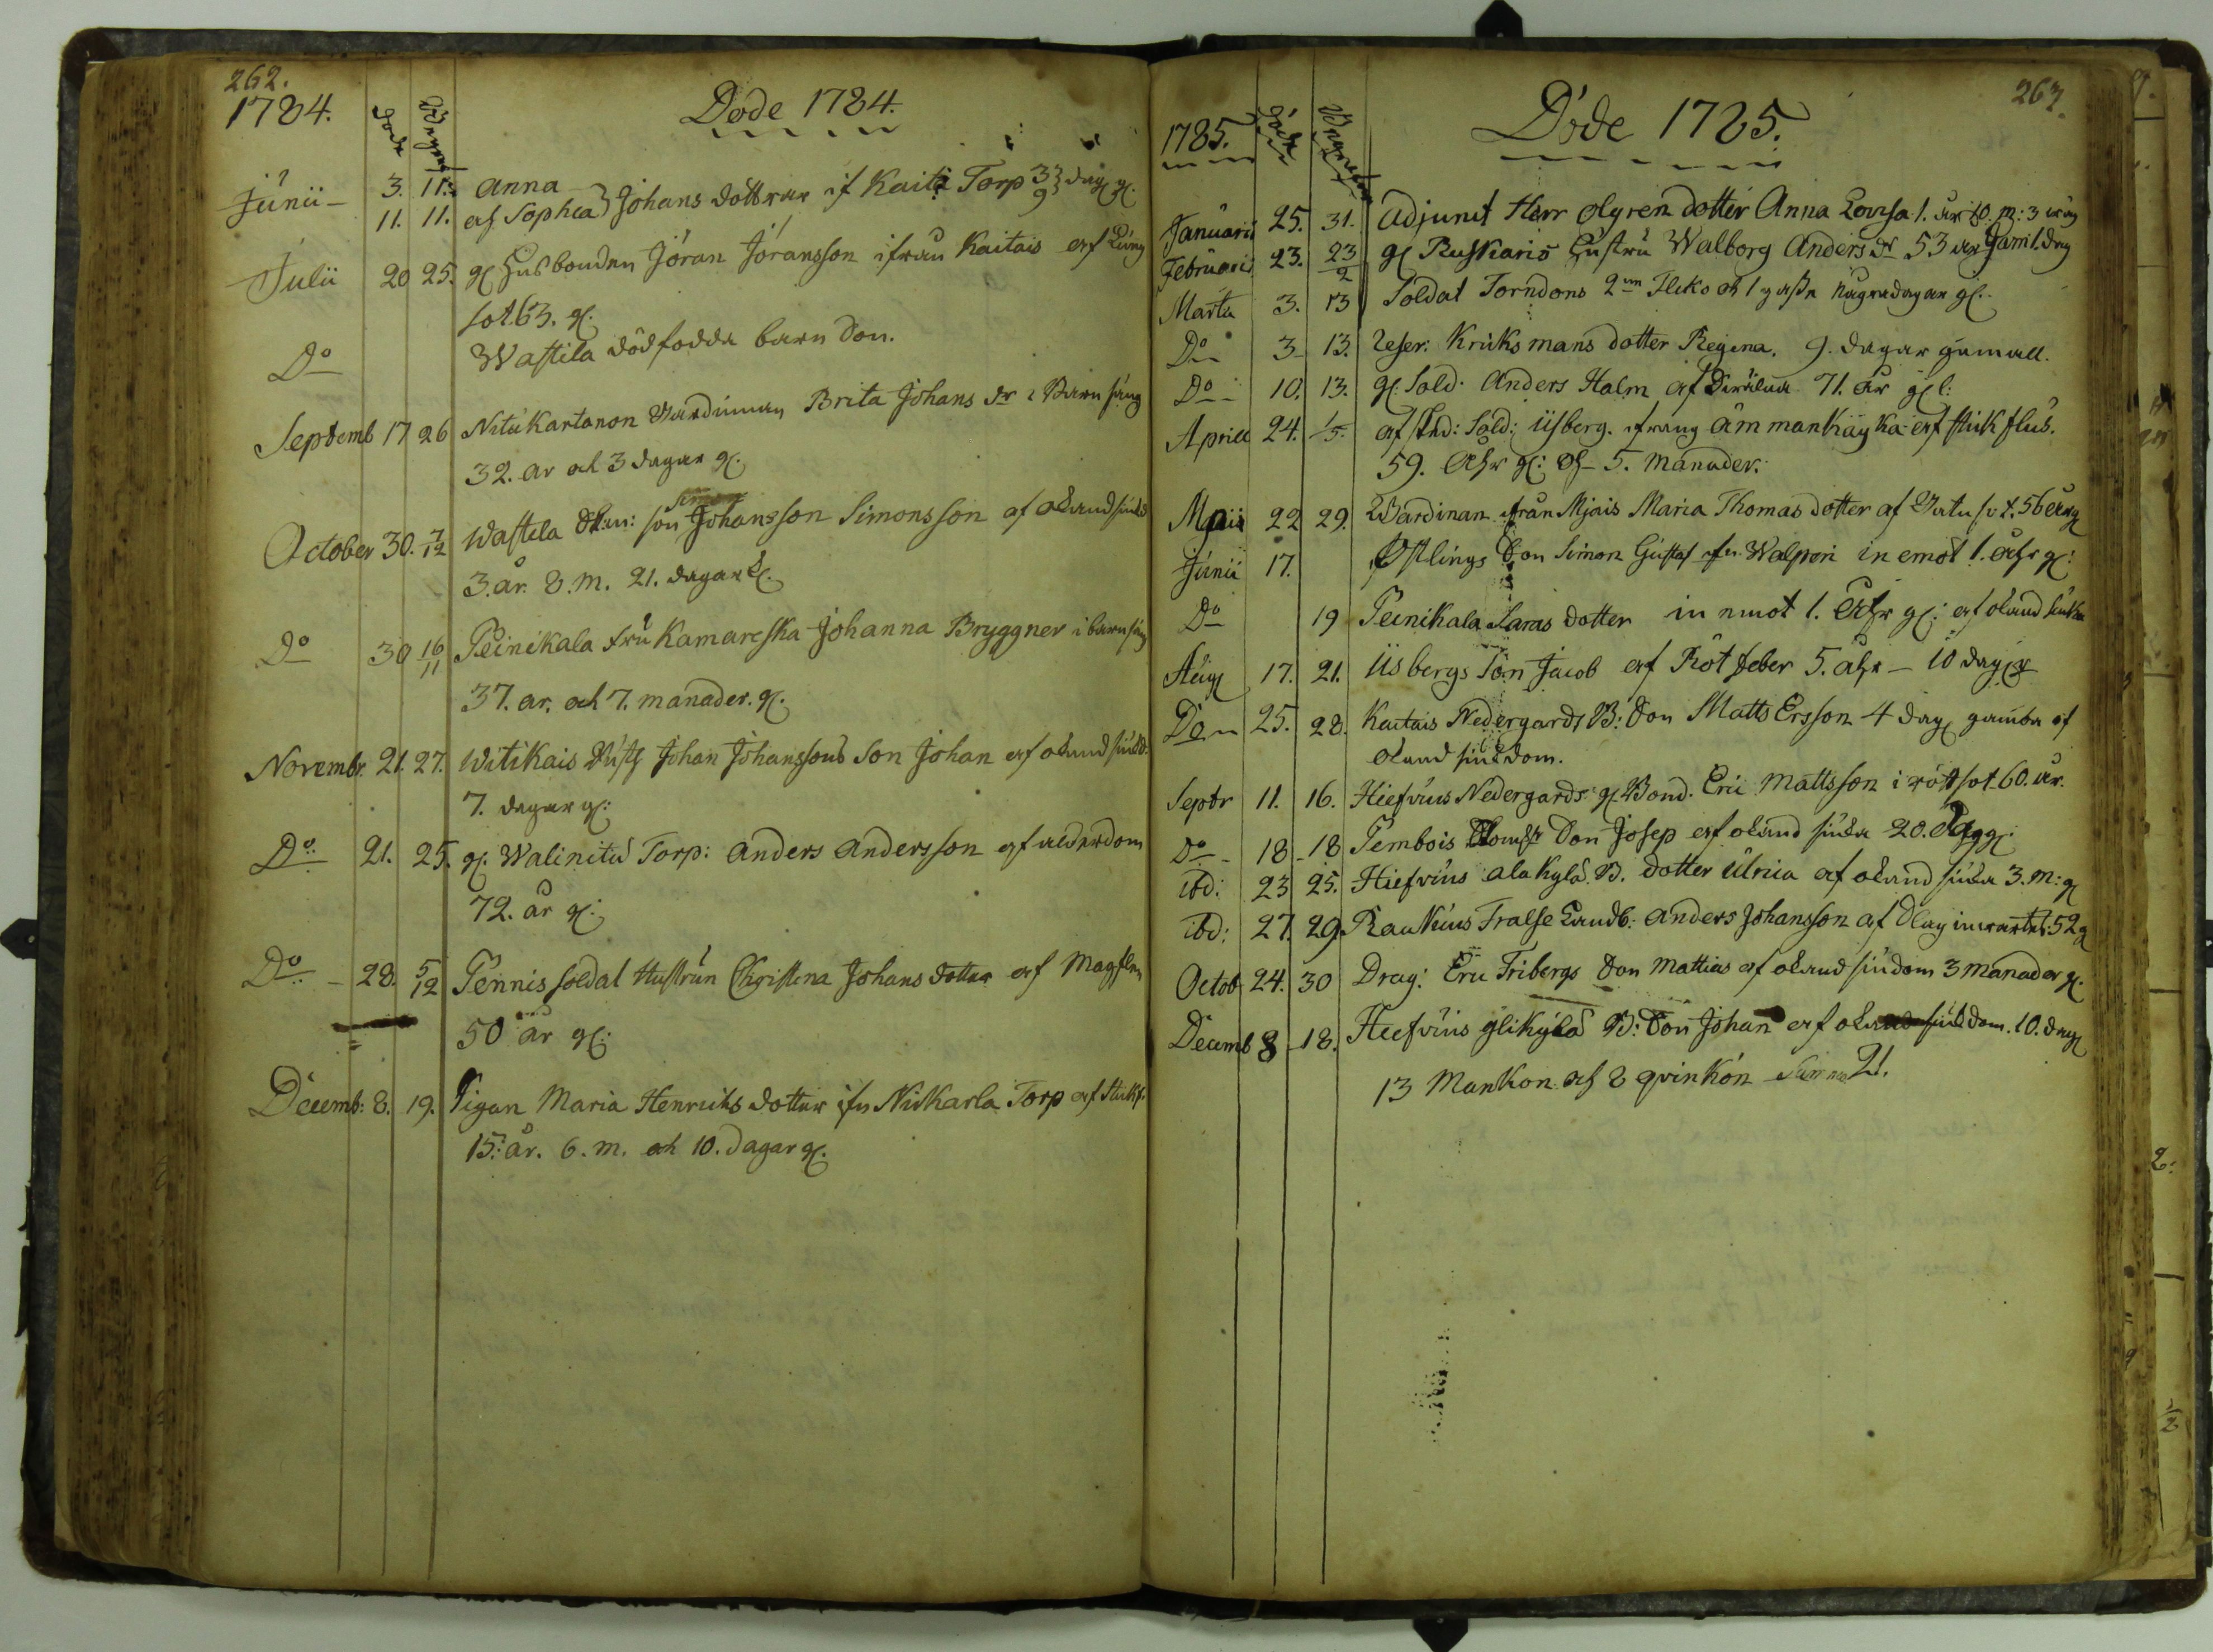 262.
1784. Döde Begrafne Döde 1784.
Junii - 3. 11. Anna
11. 11. och Sophia } Johans döttrar if Kaitis Torp 3 9 } dag gl.
Julii 20 25. gl Husbonden Jöran Jöransson ifrån Kaitais af Lung
sot. 63. gl.
Do Wastila dödfödda barn Son.
Septemb 17 26 Nitukartanon Wärdinnan Brita Johans dr i Barnsäng
32. år och 3 dagar gl.
Simon
October 30. 7/12 Wastila son Johansson Simonsson af okand siukd
3. år. 8. m. 21. dagar gl.
Do 30 16/11 Peinikala fru Kamareska Johanna Bryggner i barnsäng
37. år. och 7. månader. gl.
Novembr. 21. 27. Witikais Johan Johanssons Son Johan af okand siukd.
7. dagar gl:
Do 21. 25. gl. Walinitu Torp: Anders Andersson af ålderdom
72. år gl:
Do - 28. 5/12 Tennis soldat Hustrun Christina Johans dotter af Magplen
50 år gl:
Decemb: 8. 19. Pigan Maria Henrichs dotter ifn Niskarla Torp af Stickf.
15: år. 6. m. och 10. dagar gl.
263.
1785. Döde Begrafne Döde 1785.
Januarii 25. 31. Adjunct Herr Olgren dotter Anna Lovisa 1. år 10. m: 3 
Februarii 23. 23/2 gl Ruskaris hustru Walborg Anders dr 53 år Gam 1. dag
Martii 3. 13 Soldat Torndons 2ne och 1 några dagar gl.
Do 3 13. Reser: Kriksmans dotter Regina. 9. dagar gamall.
Do 10. 13. gl. Sold. Anders Halm af 71. år gl:
Aprill 24. 1/5. afsked: Sold: Usberg. ifrån Ammankäykä af stickflus.
59. Åhr gl: och 5. Månader.
Maii 22 29. Wärdinan ifrån Mjais Maria Thomas dotter af sot. 56 år gl
Junii 17. Östlings Son Simon Gustaf ifn. Walpori in emot 1. åhr gl:
Do 19 Peinikala Saras dotter in emot 1. Åhr gl: af okand siuka
Aug 17. 21. Usbergs Son Jacob af Rötfeber 5. åhr - 10 dag gl
Do 25. 28. Kaitais Nedergårds B: Son Matts Ersson 4 dag gamba af
okand siukdom.
Septr 11. 16. Hiefvius Nedergårds gl. Bond. Eric Mattsson i rötsot 60. år.
Do - 18 - 18 Tembois Son Josep af okand siuka 20. dag gl.
ibd: 23 25. Hiefvius Alakylä B. dotter Ulrica af okand siuka 3. m: gl
ibd: 27. 29. Raukius Fralse Landb: Anders Johansson af 52 gl
Octob 24. 30 Drag: Eric Fribergs Son Mattias af okand siukdom 3 månader gl.
Decemb 8 - 18. Hiefvius Ylikylä B: Son Johan af okand siukdom. 10. dag
13 Mankön och 8 qvinkön Summa 21.